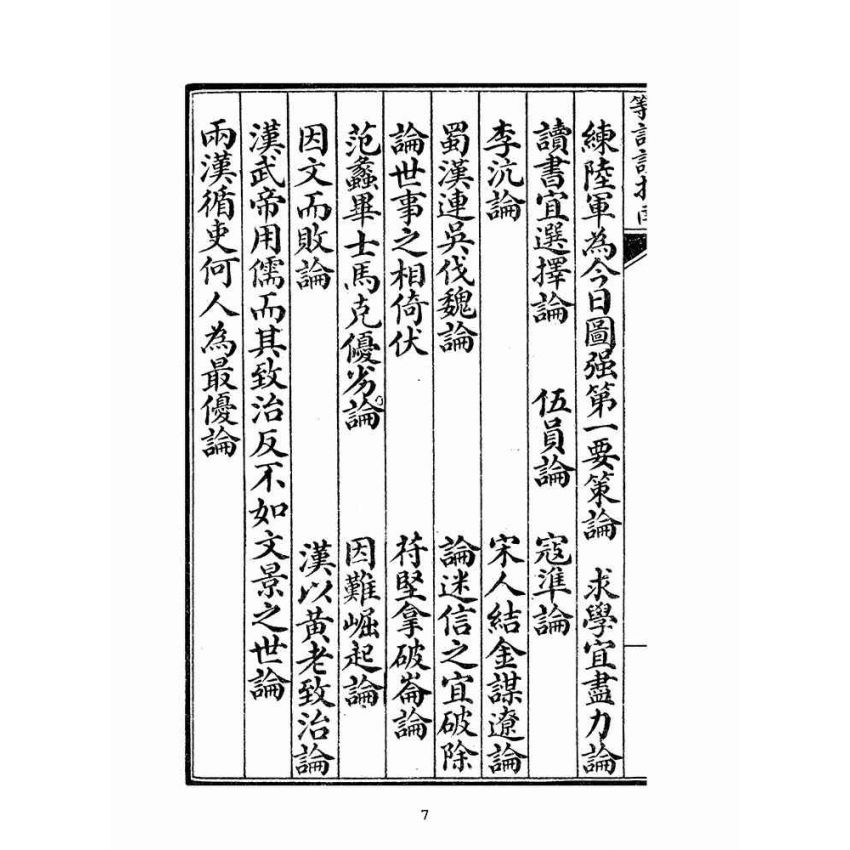 練陸軍為今日圖强第一要策論 求學宜盡力論
讀書宜選擇論 伍員論 寇準論
李沆論 宋人結金謀遼論
蜀漢連吳伐魏論 論迷信之宜破除
論世事之相倚伏 苻堅拿破崙論
范蠡畢士馬克優劣論 因難崛起論
因文而敗論 漢以黃老致治論
漢武帝用儒而其致治反不如文景之世論
兩漢循吏何人為最優論
7